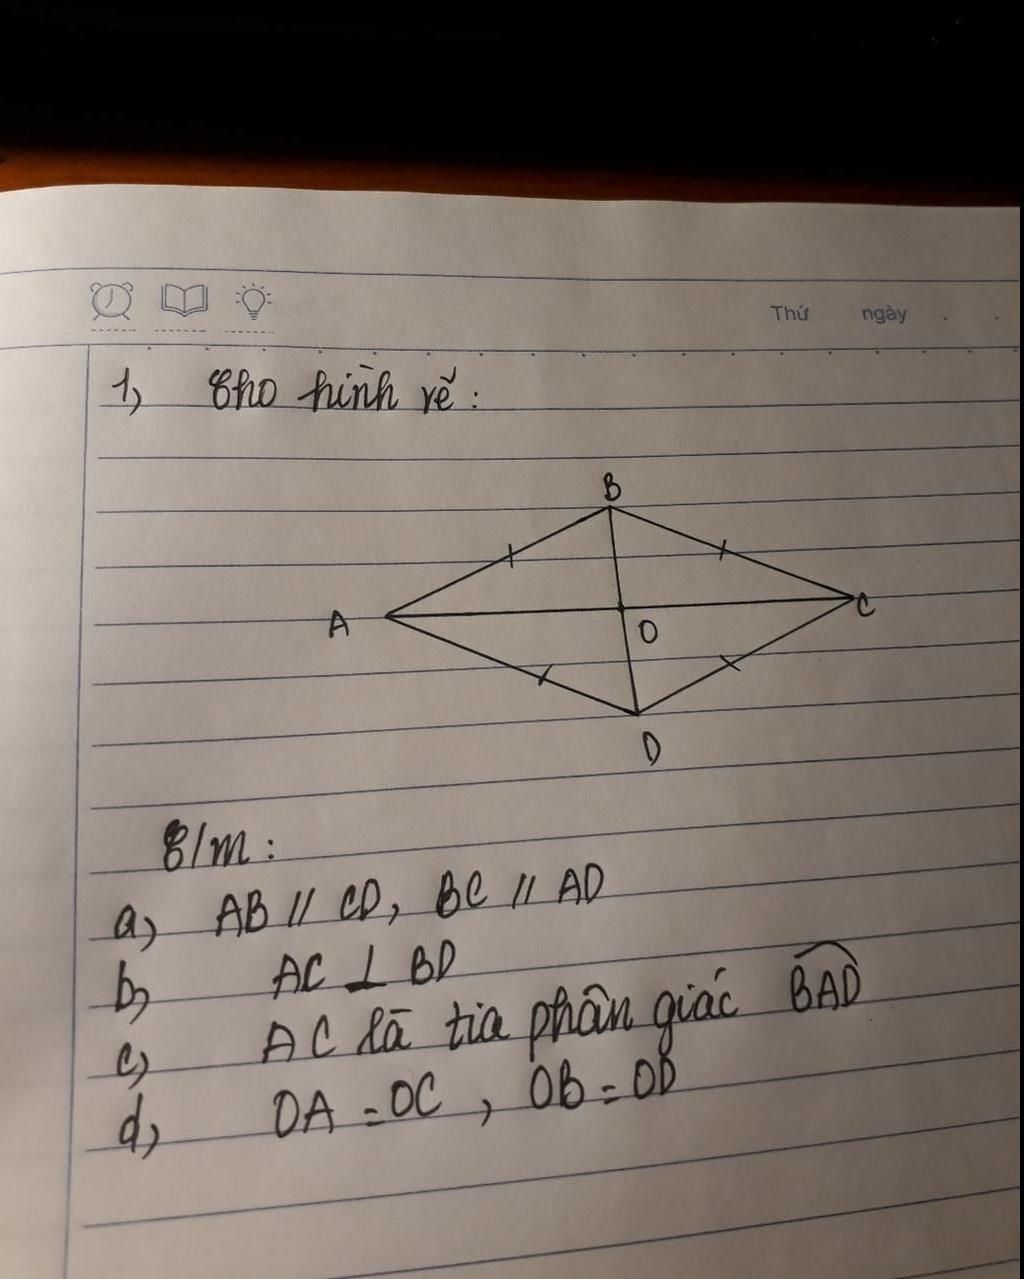 Thứ ngày
1, Cho hình vẽ:
B
A
C
O
D
C/m:
a, AB // CD, BC // AD
b, AC ⊥ BD
c, AC là tia phân giác BAD
d, OA = OC, OB = OD